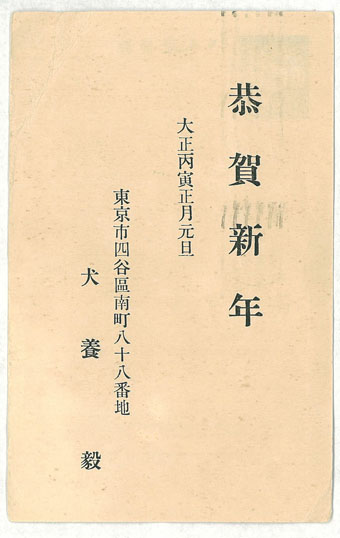 恭賀新年
大正丙寅正月元旦
東京市四谷區南町八十八番地
犬養毅